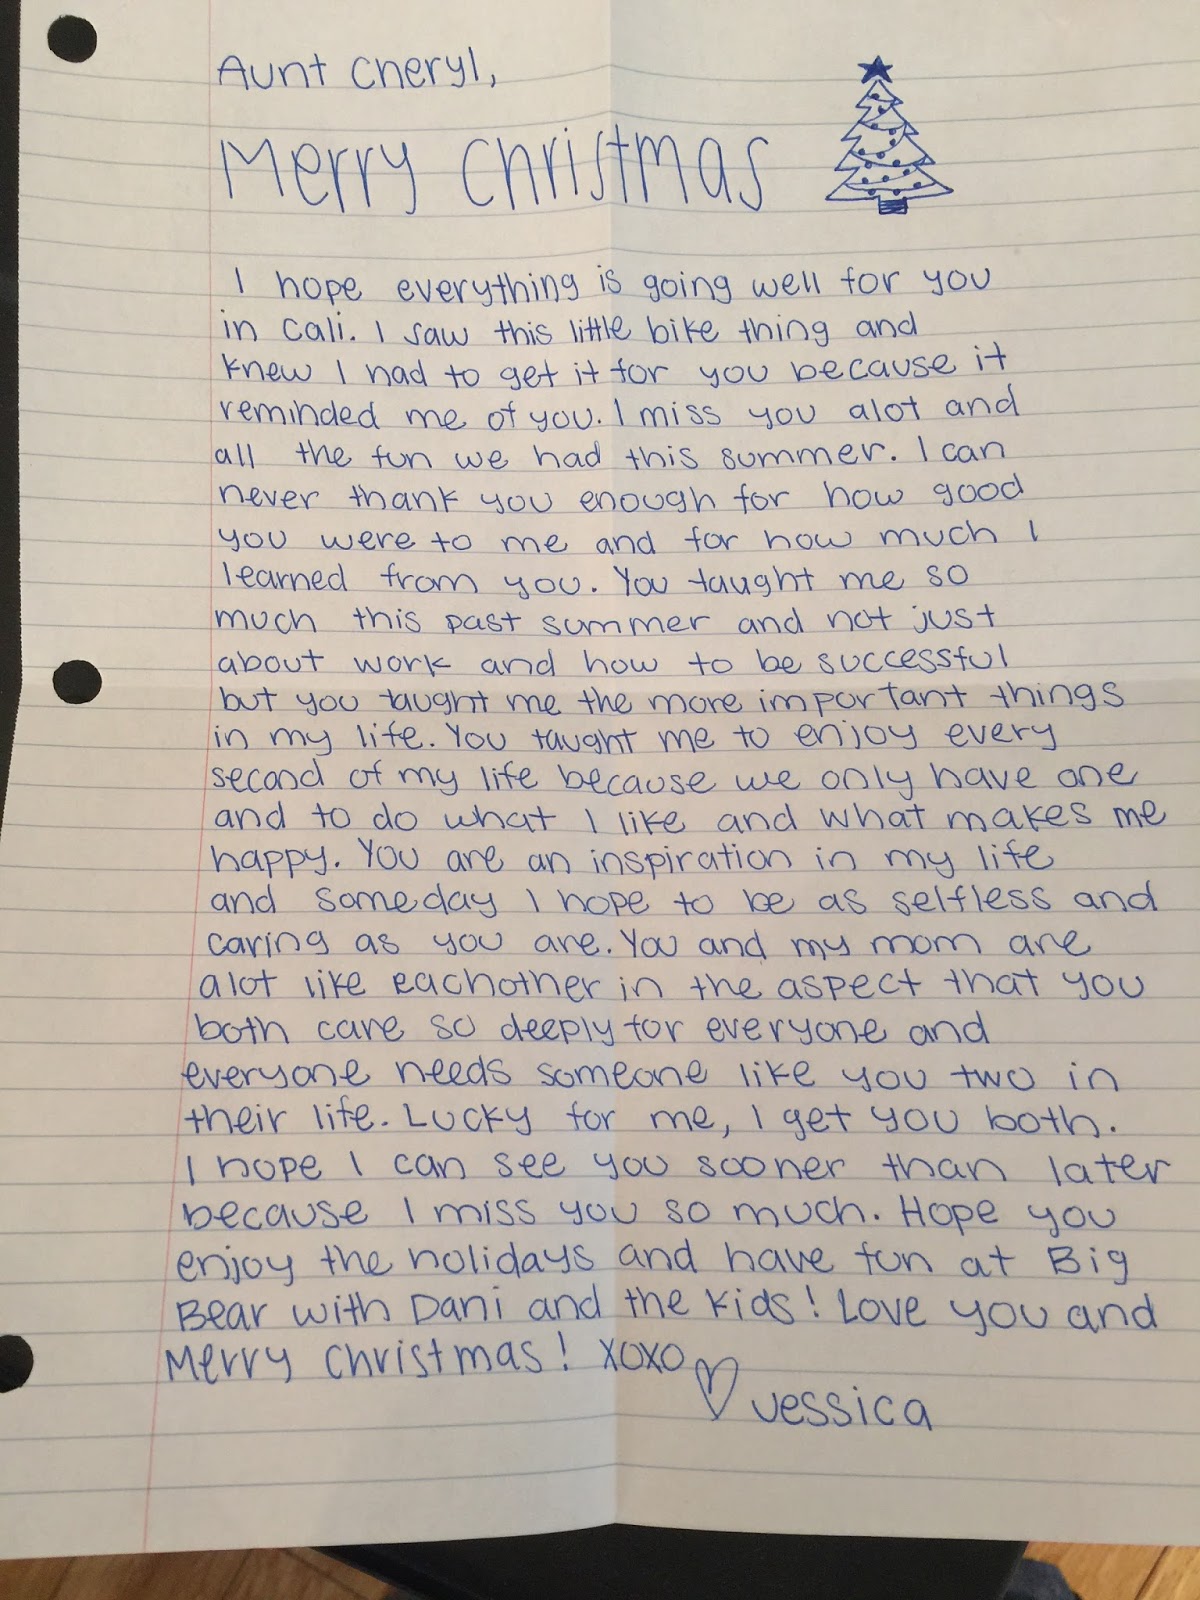 Aunt Cheryl,
Merry Christmas
I hope everything is going well for you
in Cali. I saw this little bike thing and
knew I had to get it for you because it
reminded me of you. I miss you alot and
all the fun we had this summer. I can
never thank you enough for how good
you were to me and for how much I
learned from you. You taught me so
much this past summer and not just
about work and how to be successful
but you taught me the more important things
in my life. You taught me to enjoy every
second of my life because we only have one
and to do what I like and what makes me
happy. You are an inspiration in my life
and someday I hope to be as selfless and
caring as you are. You and my mom are
alot like eachother in the aspect that you
both care so deeply for everyone and
everyone needs someone like you two in
their life. Lucky for me, I get you both.
I hope I can see you sooner than later
because I miss you so much. Hope you
enjoy the holidays and have fun at Big
Bear with Dani and the kids! Love you and
Merry Christmas! XOXO
Jessica